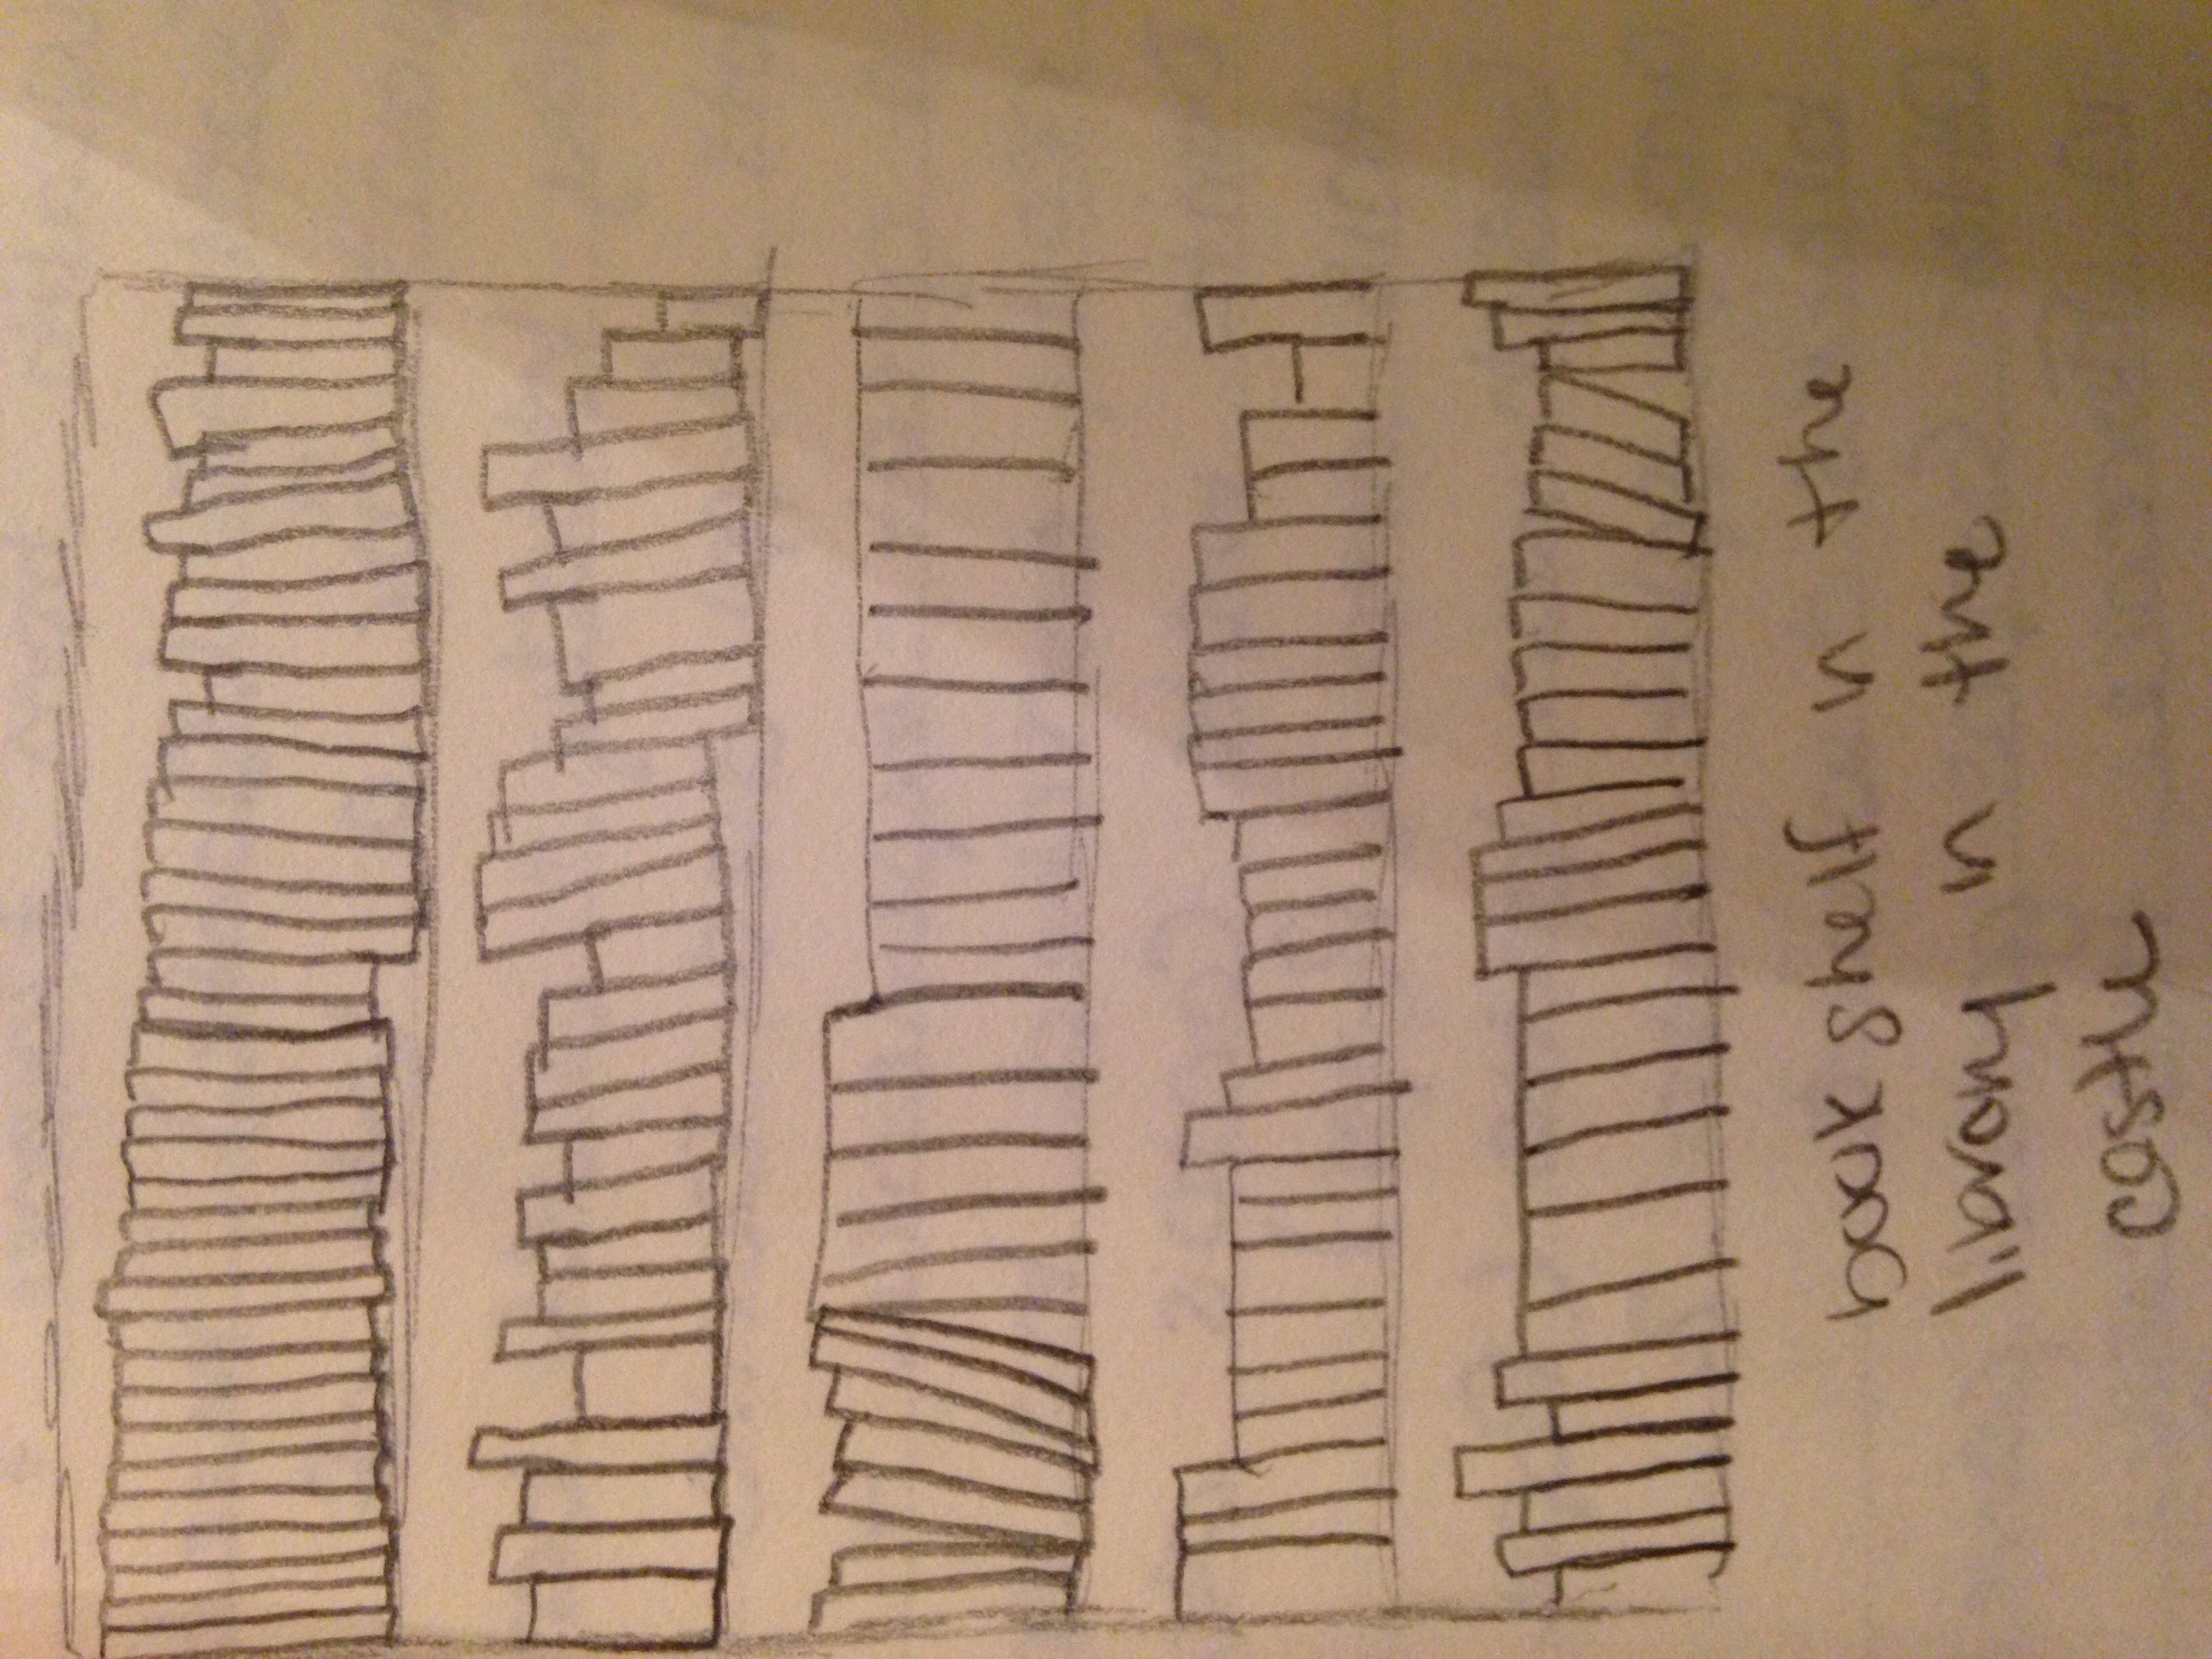 book shelf in the
library in the
castle